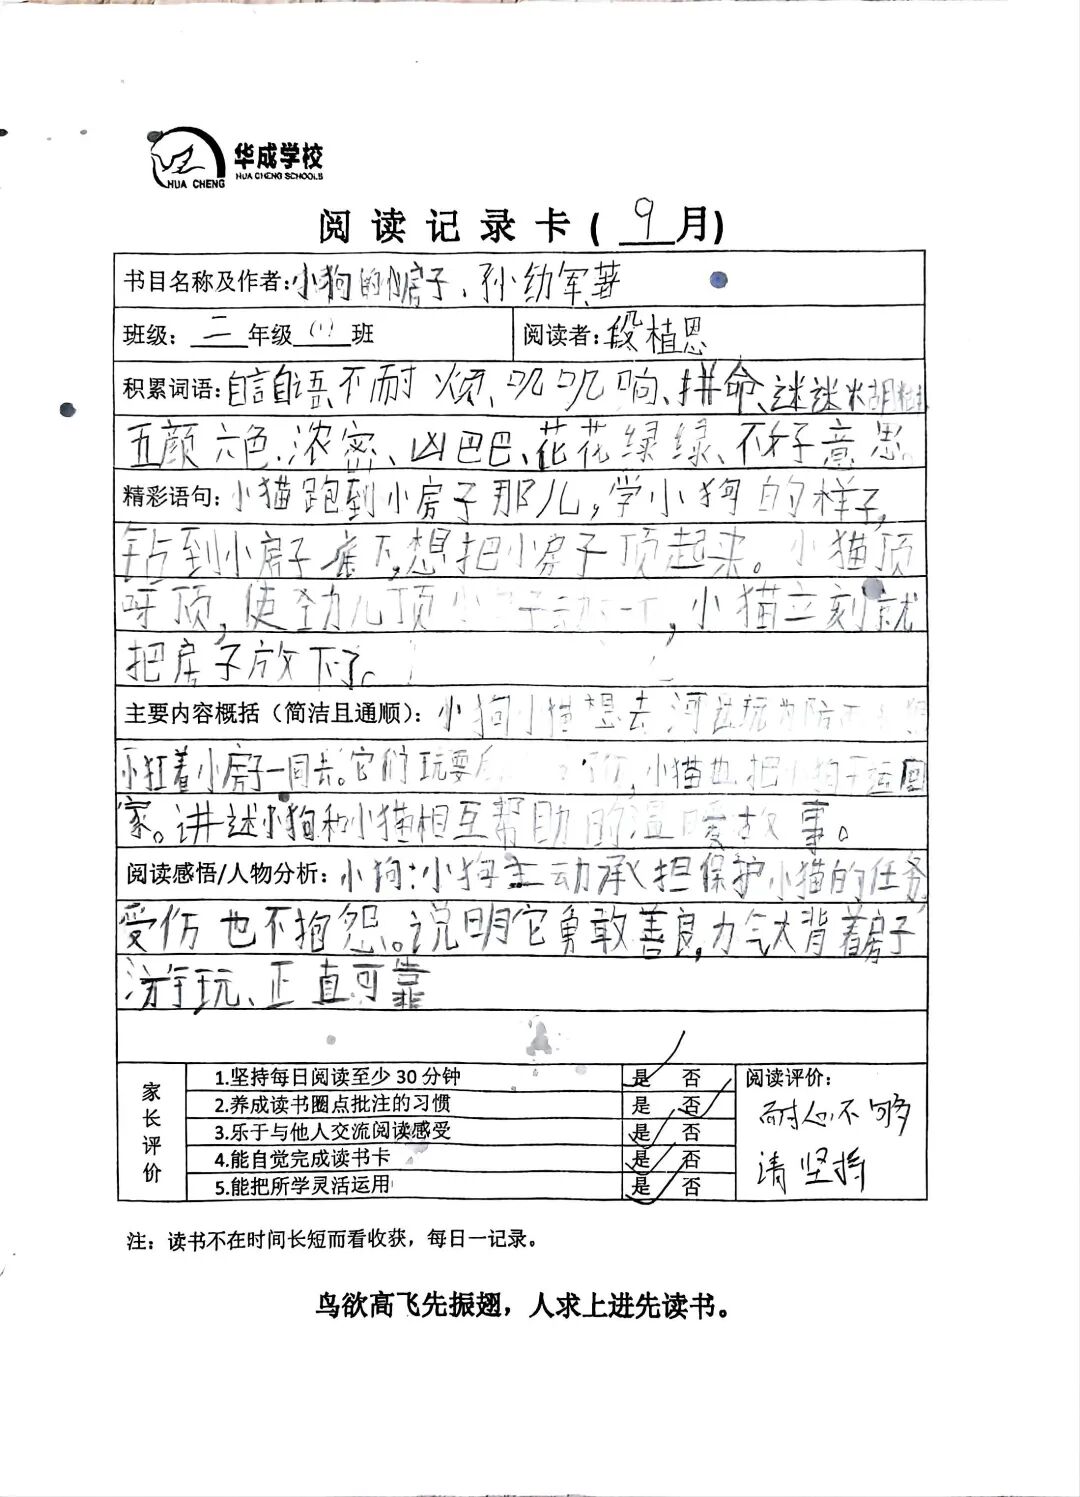 华成学校
HUA CHENG SCHOOLS
HUA CHENG
阅读记录卡(9月)
书目名称及作者:小狗的小房子、孙幼军著
班级:二年级(1)班 阅读者:段植恩
积累词语:自言自语、不耐烦、叽叽响、拼命、迷迷糊糊
五颜六色、浓密、凶巴巴、花花绿绿、不好意思。
精彩语句:小猫跑到小房子那儿,学小狗的样子,
钻到小房子底下,想把小房子顶起来。小猫顶
呀顶,使劲儿顶小子动一下,小猫立刻就
把房子放下了。
主要内容概括(简洁且通顺):小狗小猫想去河边玩为陪
小狂着小房子一同去。它们玩耍后,小猫也把小狗运回
家。讲述小狗和小猫相互帮助的温暖故事。
阅读感悟/人物分析:小狗:小狗主动承担保护小猫的任务,
受伤也不抱怨。说明它勇敢善良,力气大背着房子
游玩、正直可靠
家长评价
1.坚持每日阅读至少30分钟 是 否
2.养成读书圈点批注的习惯 是 否
3.乐于与他人交流阅读感受 是 否
4.能自觉完成读书卡 是 否
5.能把所学灵活运用 是 否
阅读评价:
耐心不够
请坚持
注:读书不在时间长短而看收获,每日一记录。
鸟欲高飞先振翅,人求上进先读书。